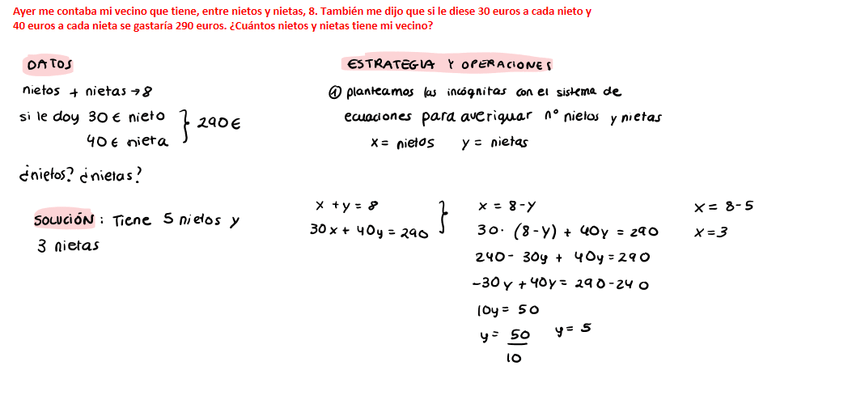 Ayer me contaba mi vecino que tiene, entre nietos y nietas, 8. También me dijo que si le diese 30 euros a cada nieto y
40 euros a cada nieta se gastaría 290 euros. ¿Cuántos nietos y nietas tiene mi vecino?
DATOS
nietos + nietas → 8
si le doy 30 € nieto
40 € nieta
} 290 €
¿nietos? ¿nietas?
SOLUCIÓN : Tiene 5 nietos y
3 nietas
ESTRATEGIA Y OPERACIONES
① planteamos las incógnitas con el sistema de
ecuaciones para averiguar nº nietos y nietas
x = nietos y = nietas
x + y = 8
30x + 40y = 290 }
x = 8-y
30· (8-y) + 40y = 290
240- 30y + 40y = 290
-30y + 40y = 290-240
10y = 50
y = 50/10 y = 5
x = 8-5
x = 3